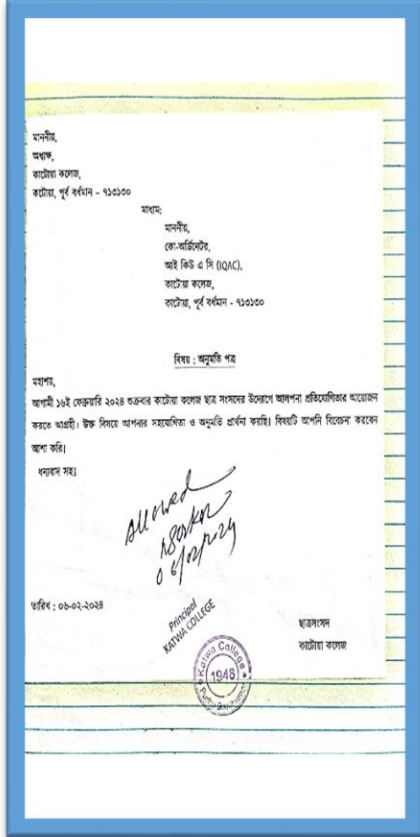 মাননীয়,
অধ্যক্ষ,
কাটোয়া কলেজ,
কাটোয়া, পূর্ব বর্ধমান – ৭১৩১৩০
মাধ্যম:
মাননীয়,
কো-অর্ডিনেটর,
আই কিউ এ সি (IQAC),
কাটোয়া কলেজ,
কাটোয়া, পূর্ব বর্ধমান - ৭১৩১৩০
বিষয় : অনুমতি পত্র
মহাশয়,
আগামী ১৬ই ফেব্রুয়ারি ২০২৪ শুক্রবার কাটোয়া কলেজ ছাত্র সংসদের উদ্যোগে আলপনা প্রতিযোগিতার আয়োজন
করতে আগ্রহী। উক্ত বিষয়ে আপনার সহযোগিতা ও অনুমতি প্রার্থনা করছি। বিষয়টি আপনি বিবেচনা করবেন
আশা করি।
ধন্যবাদ সহঃ
Allowed
06/02/2024
তারিখ : ০৬-০২-২০২৪
Principal
KATWA COLLEGE
ছাত্রসংসদ
কাটোয়া কলেজ
Katwa College
1948